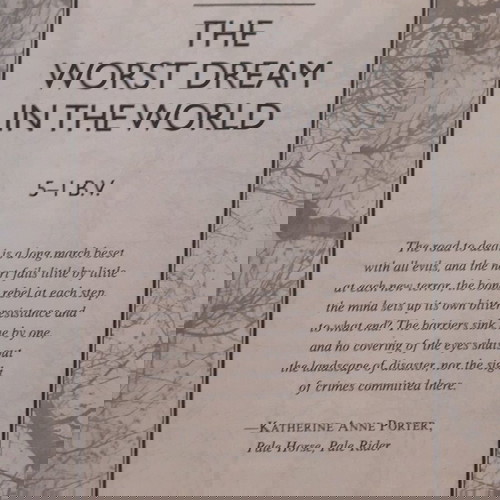 THE
WORST DREAM
IN THE WORLD
5–1 B.V.
The road to death is a long march beset
with all evils, and the heart fails little by little
at each new terror, the bones rebel at each step,
the mind sets up its own bitter resistance and
to what end? The barriers sink one by one
and no covering of the eyes shuts out
the landscape of disaster, nor the sight
of crimes committed there.
—KATHERINE ANNE PORTER,
Pale Horse, Pale Rider